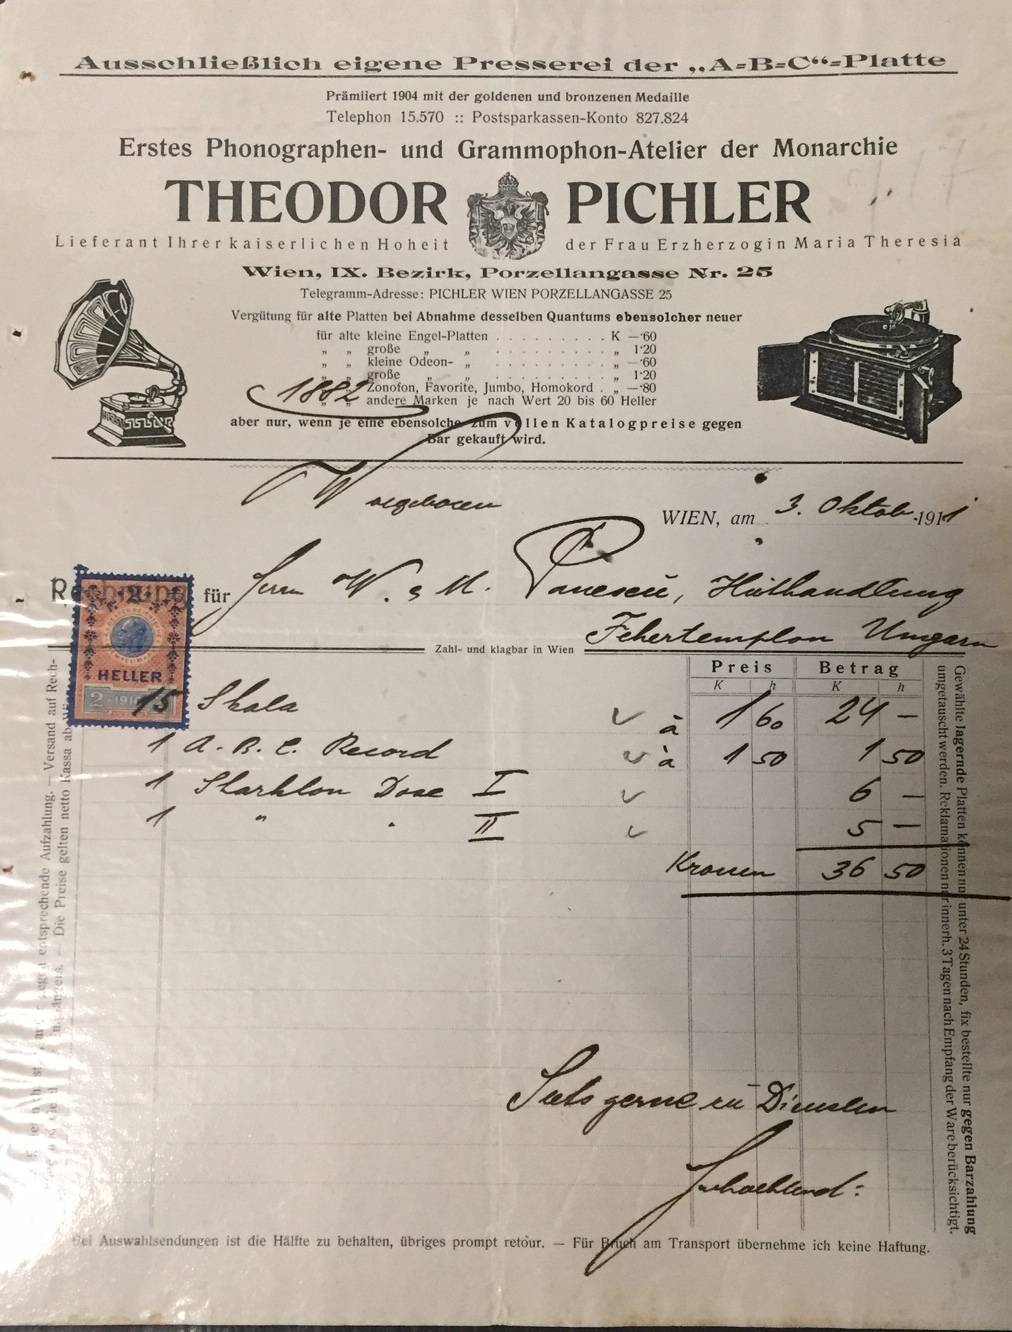 Ausschließlich eigene Presserei der „A=B=C“=Platte
Prämiiert 1904 mit der goldenen und bronzenen Medaille
Telephon 15.570 :: Postsparkassen-Konto 827.824
Erstes Phonographen- und Grammophon-Atelier der Monarchie
THEODOR PICHLER
Lieferant Ihrer kaiserlichen Hoheit der Frau Erzherzogin Maria Theresia
Wien, IX. Bezirk, Porzellangasse Nr. 25
Telegramm-Adresse: PICHLER WIEN PORZELLANGASSE 25
Vergütung für alte Platten bei Abnahme desselben Quantums ebensolcher neuer
für alte kleine Engel-Platten . . . . . . . . . K —·60
„ „ große „ „ . . . . . . . . . „ 1·20
„ „ kleine Odeon- „ . . . . . . . . . „ —·60
„ „ große „ „ . . . . . . . . . „ 1·20
„ „ Zonofon, Favorite, Jumbo, Homokord . „ —·80
„ „ andere Marken je nach Wert 20 bis 60 Heller
1882
aber nur, wenn je eine ebensolche zum vollen Katalogpreise gegen
Bar gekauft wird.
WIEN, am 3. Oktob. 1911
Rechnung für Herrn W. & M. Hüthandlung
Fehertemplon Ungarn
2
HELLER
2 1910
Zahl- und klagbar in Wien
Preis Betrag
K h K h
15 Skala à 1 60 24 —
1 A. B. C. Record à 1 50 1 50
1 Starkton Dose I 6 —
1 „ „ II 5 —
Kronen 36 50
Stets gerne zu Diensten
Bei Auswahlsendungen ist die Hälfte zu behalten, übriges prompt retour. — Für Bruch am Transport übernehme ich keine Haftung.
entsprechende Aufzahlung. — Versand auf Rech-
— Die Preise gelten netto Kassa ab
Gewählte lagernde Platten können nur unter 24 Stunden, fix bestellte nur gegen Barzahlung
umgetauscht werden. Reklamationen nur innerh. 3 Tagen nach Empfang der Ware berücksichtigt.